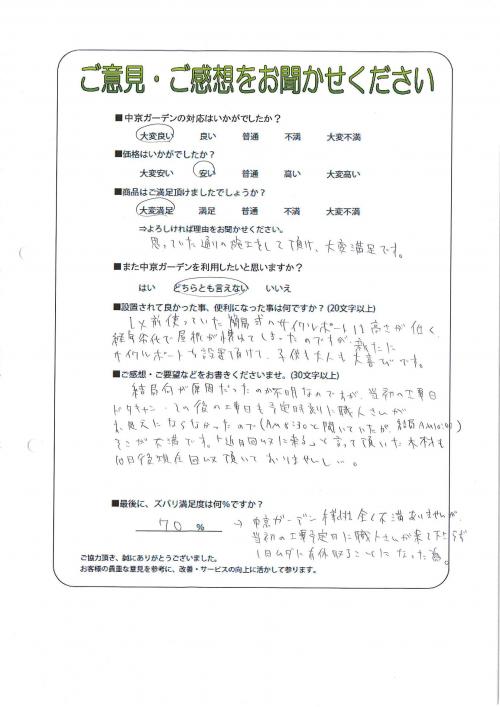 ご意見・ご感想をお聞かせください
■中京ガーデンの対応はいかがでしたか？
大変良い 良い 普通 不満 大変不満
■価格はいかがでしたか？
大変安い 安い 普通 高い 大変高い
■商品はご満足頂けましたでしょうか？
大変満足 満足 普通 不満 大変不満
⇒よろしければ理由をお聞かせください。
思っていた通りの施工をして頂け、大変満足です。
■また中京ガーデンを利用したいと思いますか？
はい どちらとも言えない いいえ
■設置されて良かった事、便利になった事は何ですか？(20文字以上)
以前使っていた簡易式のサイクルポートは高さが低く、
経年劣化で屋根が壊れてしまったのですが、新たに
サイクルポートを設置頂けて、子供も大人も大喜びです。
■ご感想・ご要望などをお書きくださいませ。(30文字以上)
結局何が原因だったのか不明なのですが、当初の工事日
ドタキャン・その後の工事日も予定時刻に職人さんが
お見えにならなかったので(AM8:30と聞いていたが、結局AM10:00)
そこが不満です。「近日回収に来る」と言って頂いた木材も
10日後現在回収頂いておりませんし…。
■最後に、ズバリ満足度は何%ですか？
70 %
→中京ガーデン様は全く不満ありませんが、
当初の工事予定日に職人さんが来て下さらず
1日ムダに有休取ることになった為。
ご協力頂き、誠にありがとうございました。
お客様の貴重な意見を参考に、改善・サービスの向上に活かして参ります。